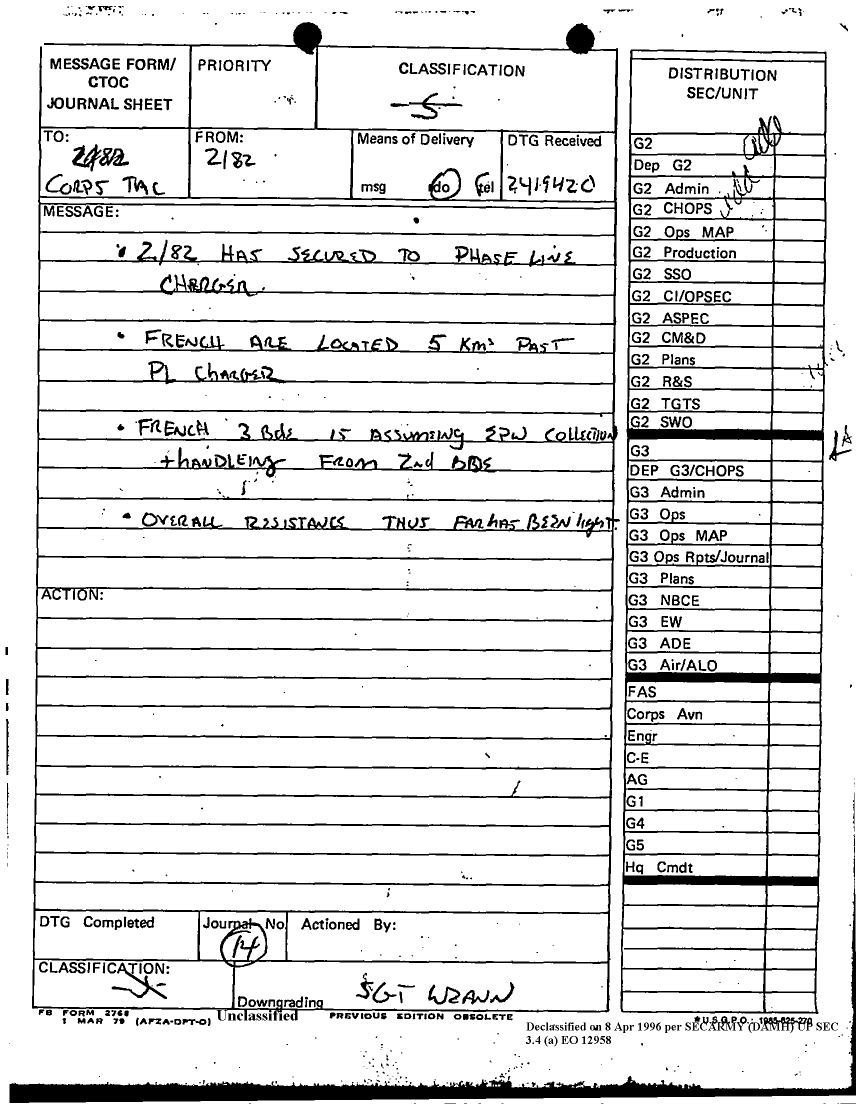 MESSAGE FORM/
CTOC
JOURNAL SHEET
PRIORITY
CLASSIFICATION
S
DISTRIBUTION
SEC/UNIT
TO:
2/82
CORPS TAC
FROM:
2/82
Means of Delivery
msg rdo tel
DTG Received
241942C
MESSAGE:
• 2/82 HAS SECURED TO PHASE LINE
CHARGER.
• FRENCH ARE LOCATED 5 Kms PAST
PL CHARGER
• FRENCH 3 Bde IS ASSUMEING EPW COLLECTION
+ HANDLEING FROM 2nd BDE
• OVERALL RESISTANCE THUS FAR HAS BEEN light
ACTION:
DTG Completed
Journal No.
14
Actioned By:
CLASSIFICATION:
Downgrading
Unclassified
SGT
FB FORM 2768
1 MAR 79 (AFZA-DPT-O)
PREVIOUS EDITION OBSOLETE
G2
Dep G2
G2 Admin
G2 CHOPS
G2 Ops MAP
G2 Production
G2 SSO
G2 CI/OPSEC
G2 ASPEC
G2 CM&D
G2 Plans
G2 R&S
G2 TGTS
G2 SWO
G3
DEP G3/CHOPS
G3 Admin
G3 Ops
G3 Ops MAP
G3 Ops Rpts/Journal
G3 Plans
G3 NBCE
G3 EW
G3 ADE
G3 Air/ALO
FAS
Corps Avn
Engr
C-E
AG
G1
G4
G5
Hq Cmdt
*U.S.G.P.O.: 1985-625-270
Declassified on 8 Apr 1996 per SECARMY (DAMH) UP SEC
3.4 (a) EO 12958